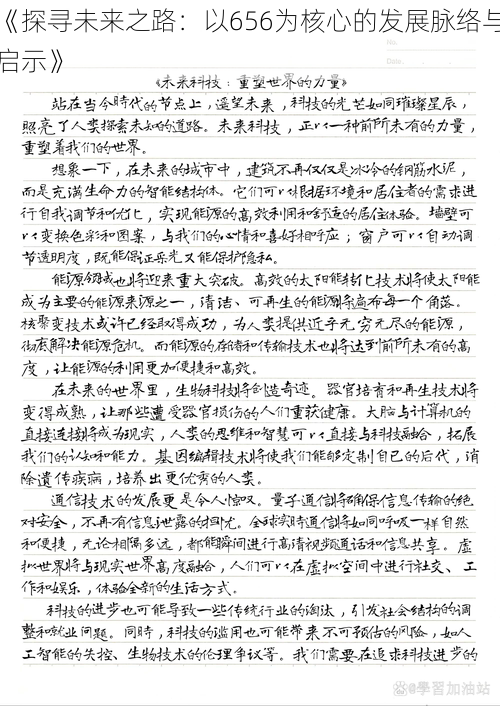 《探寻未来之路：以656为核心的发展脉络与
启示》
No.
Date.
《未来科技：重塑世界的力量》
站在当今時代的节点上，遥望未来，科技的光芒如同璀璨星辰，
照亮了人类探索未知的道路。未来科技，正以一种前所未有的力量，
重塑着我们的世界。
想象一下，在未来的城市中，建筑不再仅仅是冰冷的钢筋水泥，
而是充满生命力的智能结构体。它们可以根据环境和居住者的需求进
行自我调节和优化，实现能源的高效利用和舒适的居住体验。墙壁可
以变换色彩和图案，与我们的心情和喜好相呼应；窗户可以自动调
节透明度，既能保证采光又能保护隐私。
能源领域也将迎来重大突破。高效的太阳能转化技术将使太阳能
成为主要的能源来源之一，清洁、可再生的能源将遍布每一个角落。
核聚变技术或许已经取得成功，为人类提供近乎无穷无尽的能源，
彻底解决能源危机。而能源的存储和传输技术也将达到前所未有的高
度，让能源的利用更加便捷和高效。
在未来的世界里，生物科技将创造奇迹。器官培育和再生技术将
变得成熟，让那些遭受器官损伤的人们重获健康。大脑与计算机的
直接连接将成为现实，人类的思维和智慧可以直接与科技融合，拓展
我们的认知和能力。基因编辑技术将使我们能够定制自己的后代，消
除遗传疾病，培养出更优秀的人类。
通信技术的发展更是令人惊叹。量子通信将确保信息传输的绝
对安全，不再有信息泄露的担忧。全球实时通信将如同呼吸一样自然
和便捷，无论相隔多远，都能瞬间进行高清视频通话和信息共享。虚
拟世界将与现实世界高度融合，人们可以在虚拟空间中进行社交、工
作和娱乐，体验全新的生活方式。
科技的进步也可能导致一些传统行业的淘汰，引发社会结构的调
整和就业问题。同時，科技的滥用也可能带来不可预估的风险，如人
工智能的失控、生物技术的伦理争议等。我们需要在追求科技进步的
@學習加油站